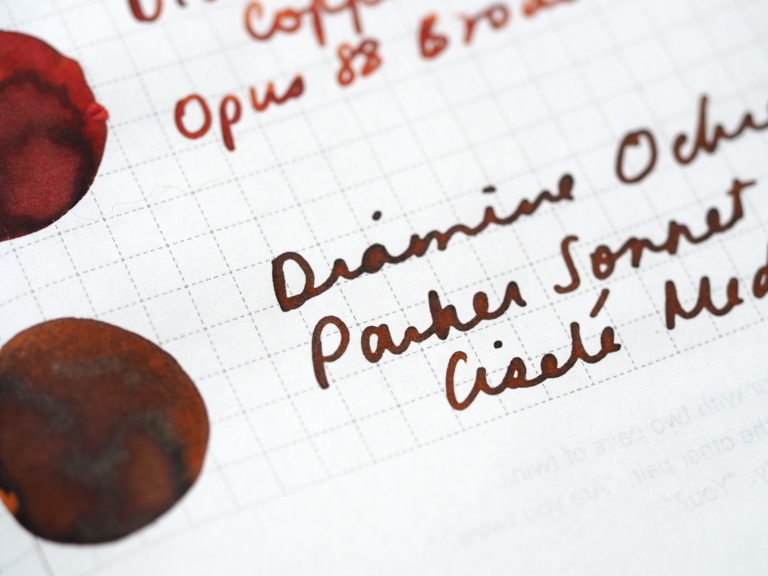 Opus 88 Broad
Diamine Ochre
Parker Sonnet
Ciselé Med